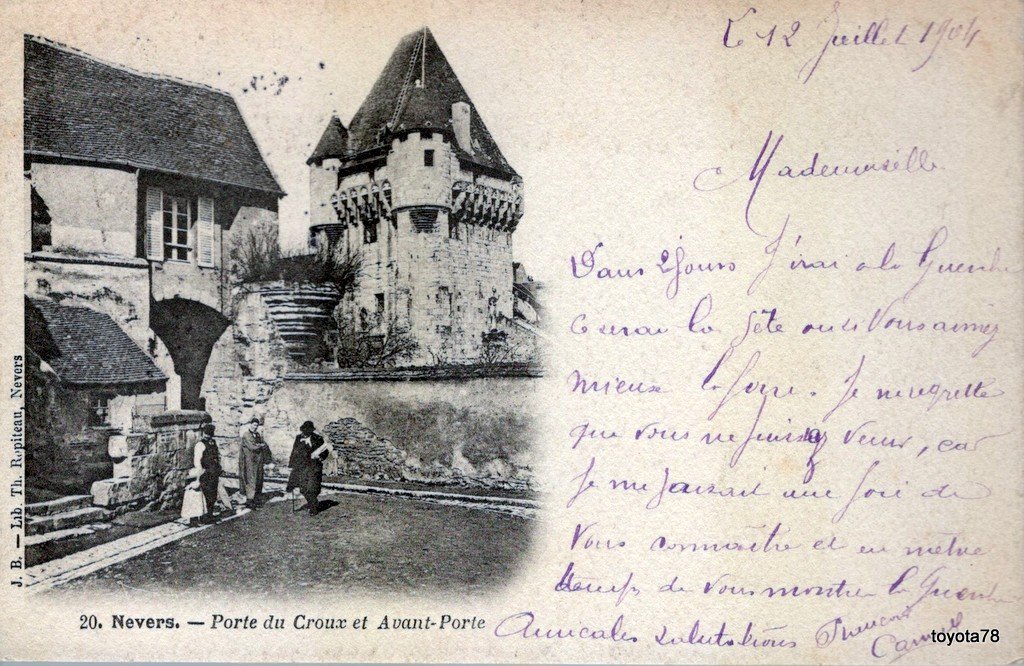 Le 12 Juillet 1904
Mademoiselle
Dans 2 jours j'irai a la Guerche
ce serai la fête ou si Vous aimez
mieux la foire. Je ne regrette
que vous ne puissez venir, car
Je me faisait une joie de
Vous connaitre et en même
temps de vous montrer la Guerche
Amicales salutations
20. Nevers. — Porte du Croux et Avant-Porte
J. B. — Lib. Th. Ropiteau, Nevers
toyota78